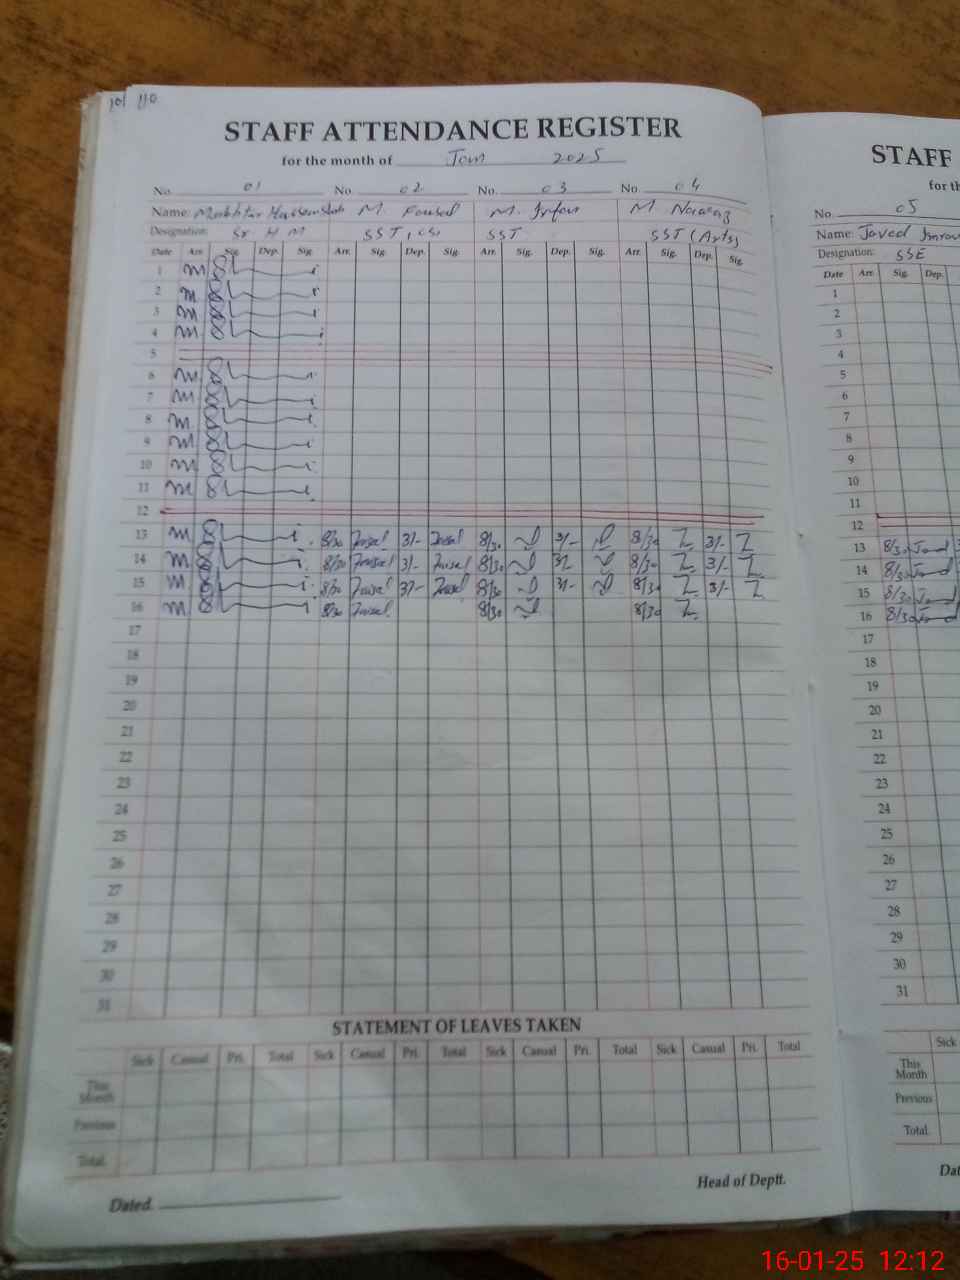 10/ 110
STAFF ATTENDANCE REGISTER
for the month of Jan 2025
No. 01 No. 02 No. 03 No. 04
Name: M. M. Irfan M Nawaz
Designation: Sr H M SST, SST SST (Arts)
Date Arr. Sig. Dep. Sig. Arr. Sig. Dep. Sig. Arr. Sig. Dep. Sig. Arr. Sig. Dep. Sig.
1
2
3
4
5
6
7
8
9
10
11
12
13 8/30 Faisal 3/- Faisal 8/30 3/- 8/30 3/-
14 8/30 Faisal 3/- Faisal 8/30 3/- 8/30 3/-
15 8/30 Faisal 3/- Faisal 8/30 3/- 8/30 3/-
16 8/30 Faisal 8/30 8/30
17
18
19
20
21
22
23
24
25
26
27
28
29
30
31
STATEMENT OF LEAVES TAKEN
Sick Casual Pri. Total Sick Casual Pri. Total Sick Casual Pri. Total Sick Casual Pri. Total
This Month
Previous
Total.
Dated.
Head of Deptt.
STAFF
for th
No. 05
Name: Javed Imran
Designation: SSE
Date Arr. Sig. Dep.
1
2
3
4
5
6
7
8
9
10
11
12
13 8/30 Javed 3
14 8/30 Javed
15 8/30 Javed
16 8/30 Javed
17
18
19
20
21
22
23
24
25
26
27
28
29
30
31
Sick
This Month
Previous
Total.
Dat
16-01-25 12:12